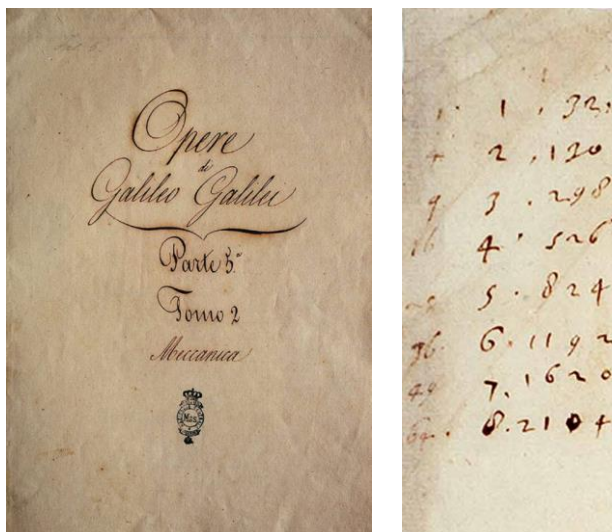 Opere
di
Galileo Galilei
Parte 5.a
Tomo 2
Meccanica
1 1 . 32.
4 2 . 130
9 3 . 298
16 4 . 526
25 5 . 824
36 6 . 1192
49 7 . 1620
64 8 . 2104